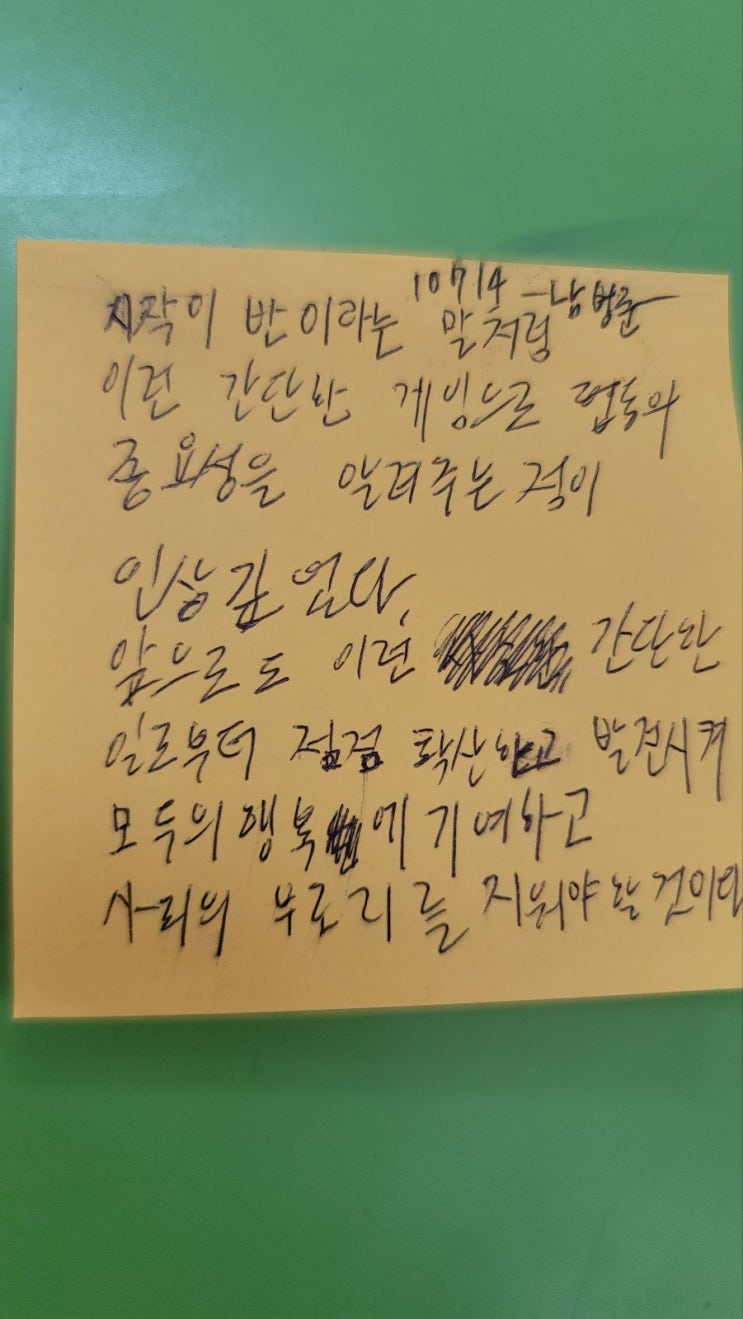 10714 - 남병준
시작이 반이라는 말처럼
이런 간단한 게임으로 협동의
중요성을 알려주는 점이
인상깊었다.
앞으로도 이런 간단한
일로부터 점점 확산하고 발전시켜
모두의 행복에 기여하고
사회의 부조리를 지워야 할 것이다